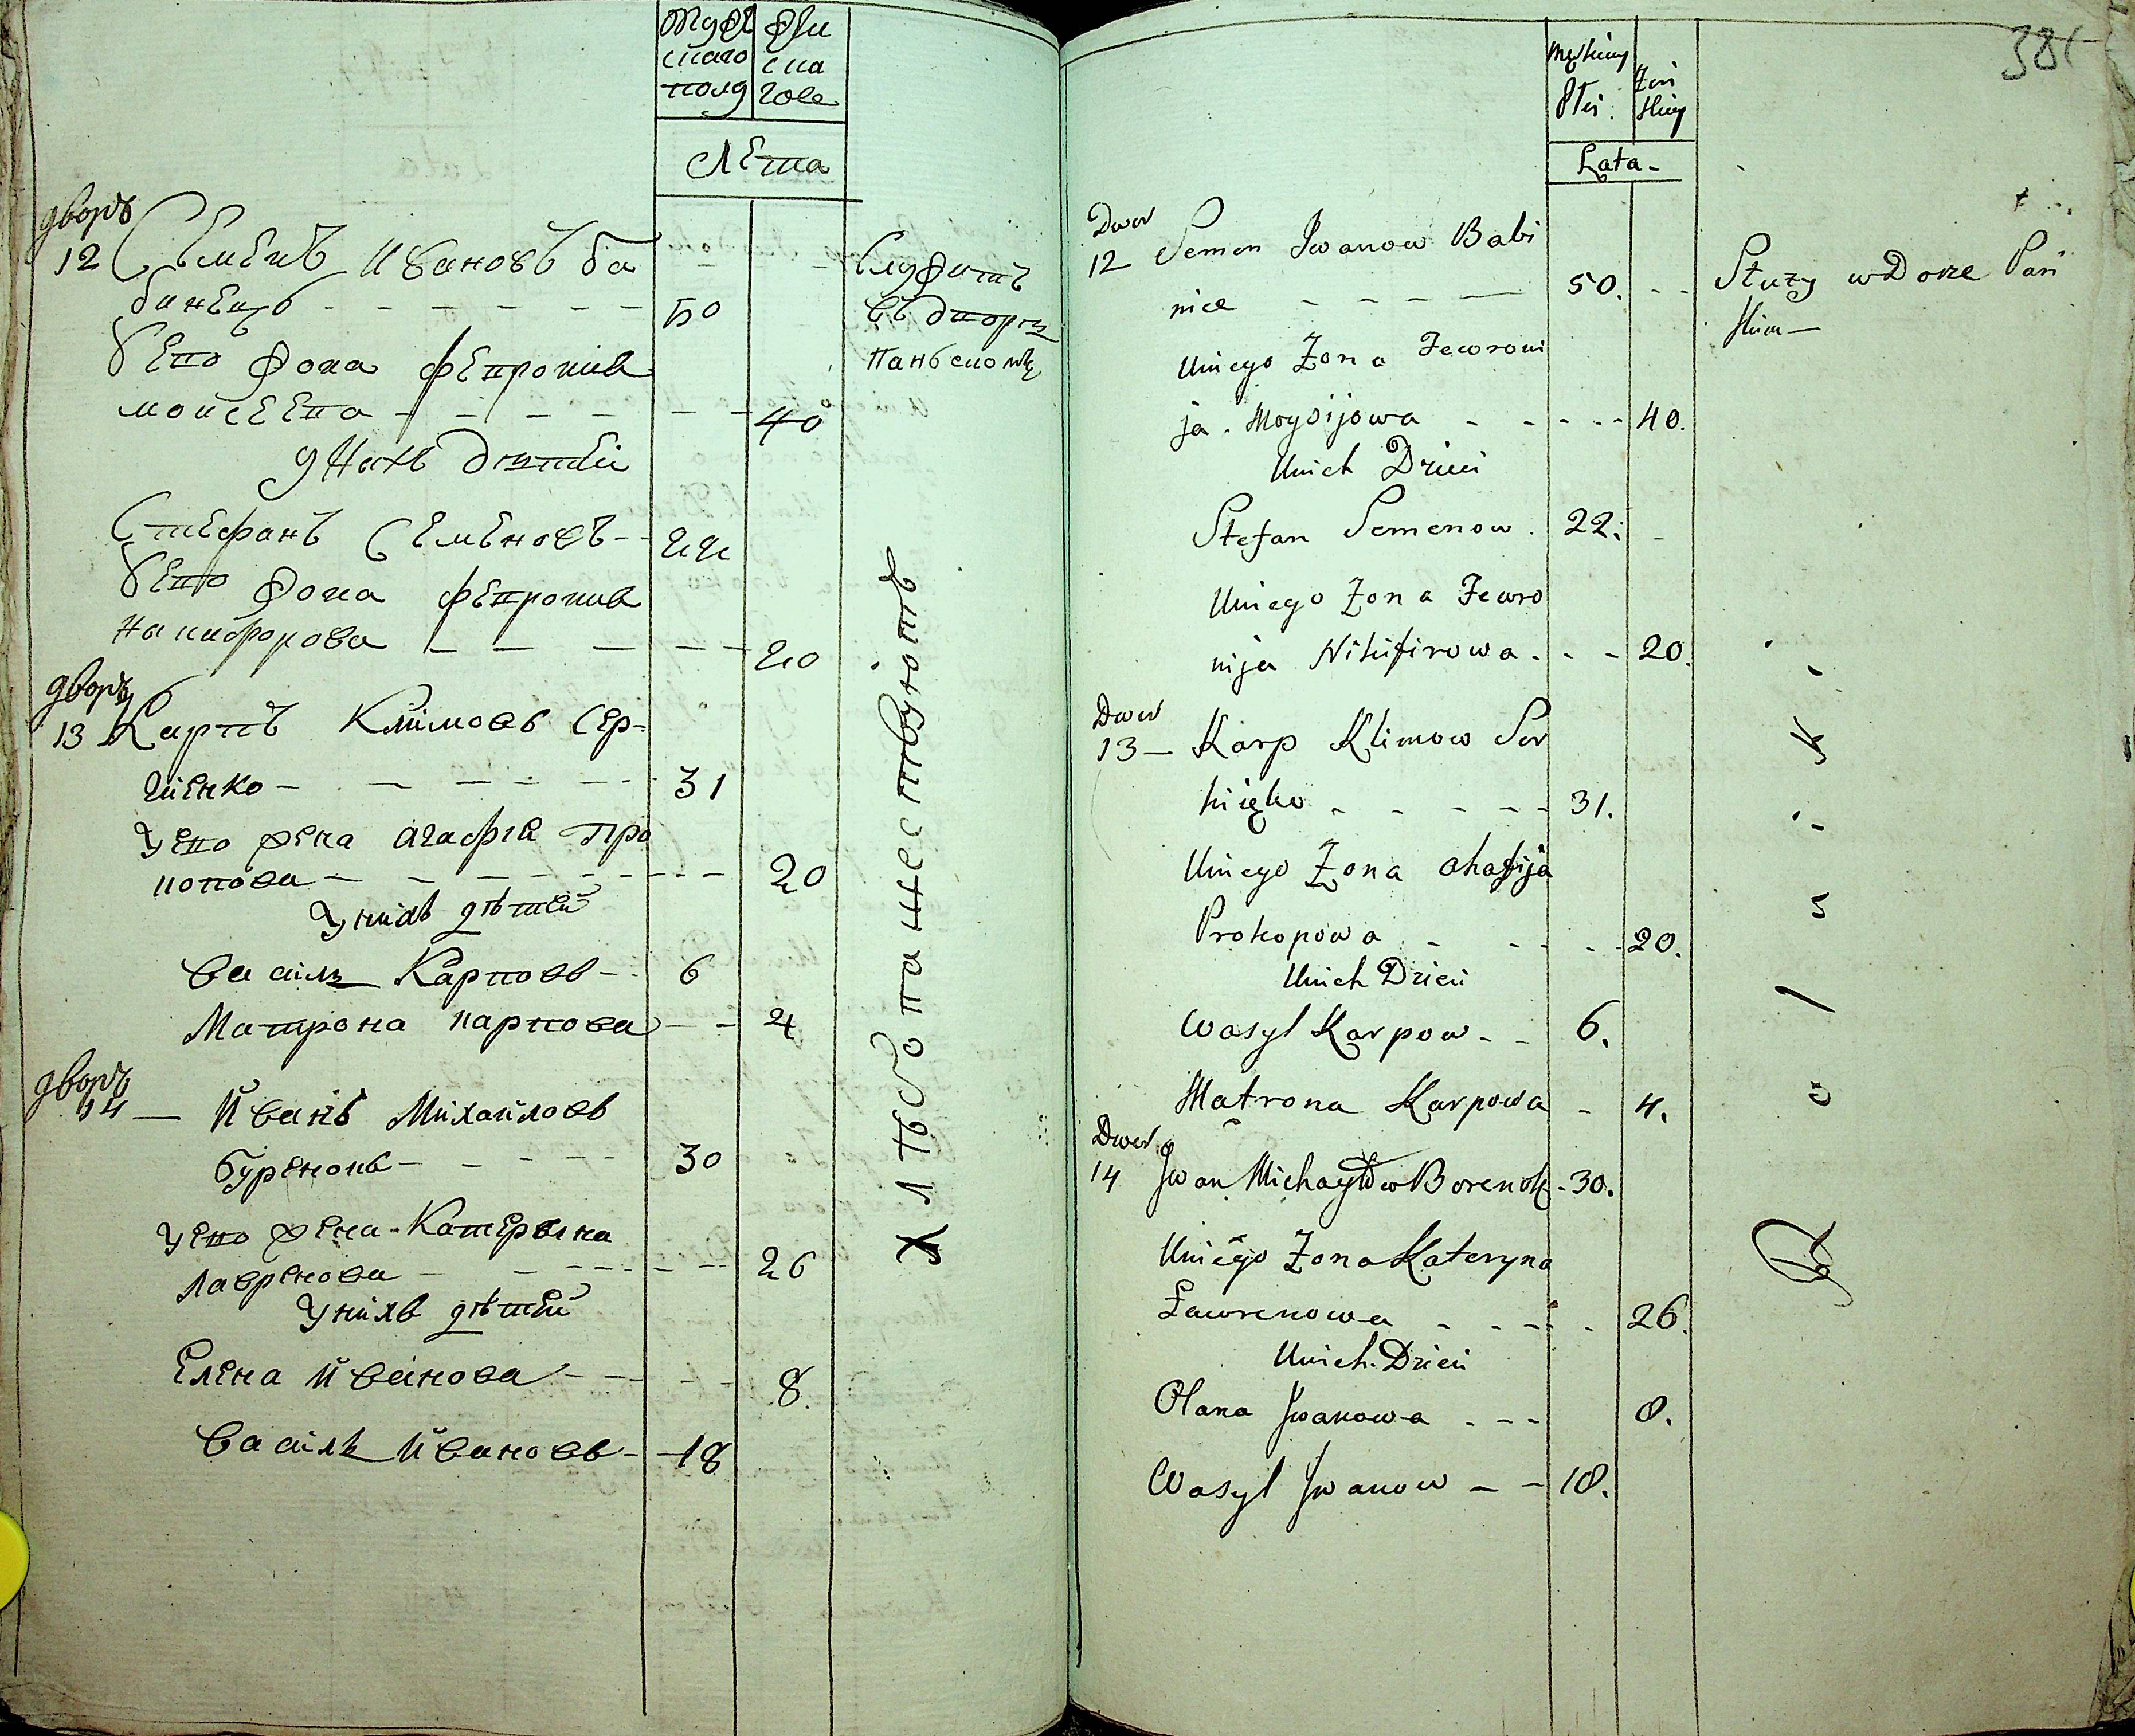 мужескаго полу
женскаго
Лета
дворъ
12 Семенъ Ивановъ ба
бинецъ - - - - - - 50
Служитъ
въ дворѣ
паньскомъ
Его жона феврония
моисеева - - - - - - 40
у нихъ дѣтей
Стефанъ Семеновъ - - 22
Его жона феврония
никифорова - - - - - 20
дворъ
13 Карпъ Климовъ Сер-
гиенко - - - - - - 31
У его жена агафия про
копова - - - - - - - - 20
У нихъ дѣтей
василь Карповъ - - 6
Матрона карпова - - 4
дворъ
14 — Иванъ Михайловъ
буренокъ - - - - - 30
У его жена Катерына
лавренова - - - - - - 26
У нихъ дѣтей
Елена Иванова - - - - 8.
василь Ивановъ - - 18
хлѣбопашествуютъ
381
męskiey płci
żeńskiey
Lata -
Dwor
12 Semen Iwanow Babi
niec - - - — 50. - -
Służy w Dorze Pań
skim —
Uniego Żona Fewroni
ja Moysijowa - - - - - 40.
Unich Dzieci
Stefan Semenow. 22.
Uniego Żona Fewro
nija Nikifirowa. - - 20.
Dwor
13 — Karp Klimow Ser
hięko - - - - - 31.
Uniego Żona ahafija
Prokopowa - - - - 20.
Unich Dzieci
Wasyl Karpow - - 6.
Matrona Karpowa - 4.
Dwor
14 Jwan Michayłow Borenok - 30.
Uniego Żona Kateryna
Ławrenowa - - - - - 26.
Unich Dzieci
Olana Jwanowa - - - 8.
Wasyl Jwanow - - 18.